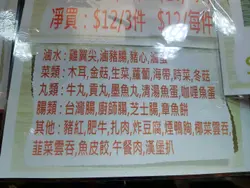 淨買: $12/3件 $12/每件
滷水: 雞翼尖,滷豬腸,豬心,滷蛋
菜類: 木耳,金菇,生菜,蘿蔔,海帶,時菜,冬菇
丸類: 牛丸,貢丸,墨魚丸,清湯魚蛋,咖喱魚蛋
腸類: 台灣腸,廚師腸,芝士腸,章魚餅
其他: 豬紅,肥牛,扎肉,炸豆腐,煙鴨胸,椰菜雲吞,
韮菜雲吞,魚皮餃,午餐肉,漢堡扒